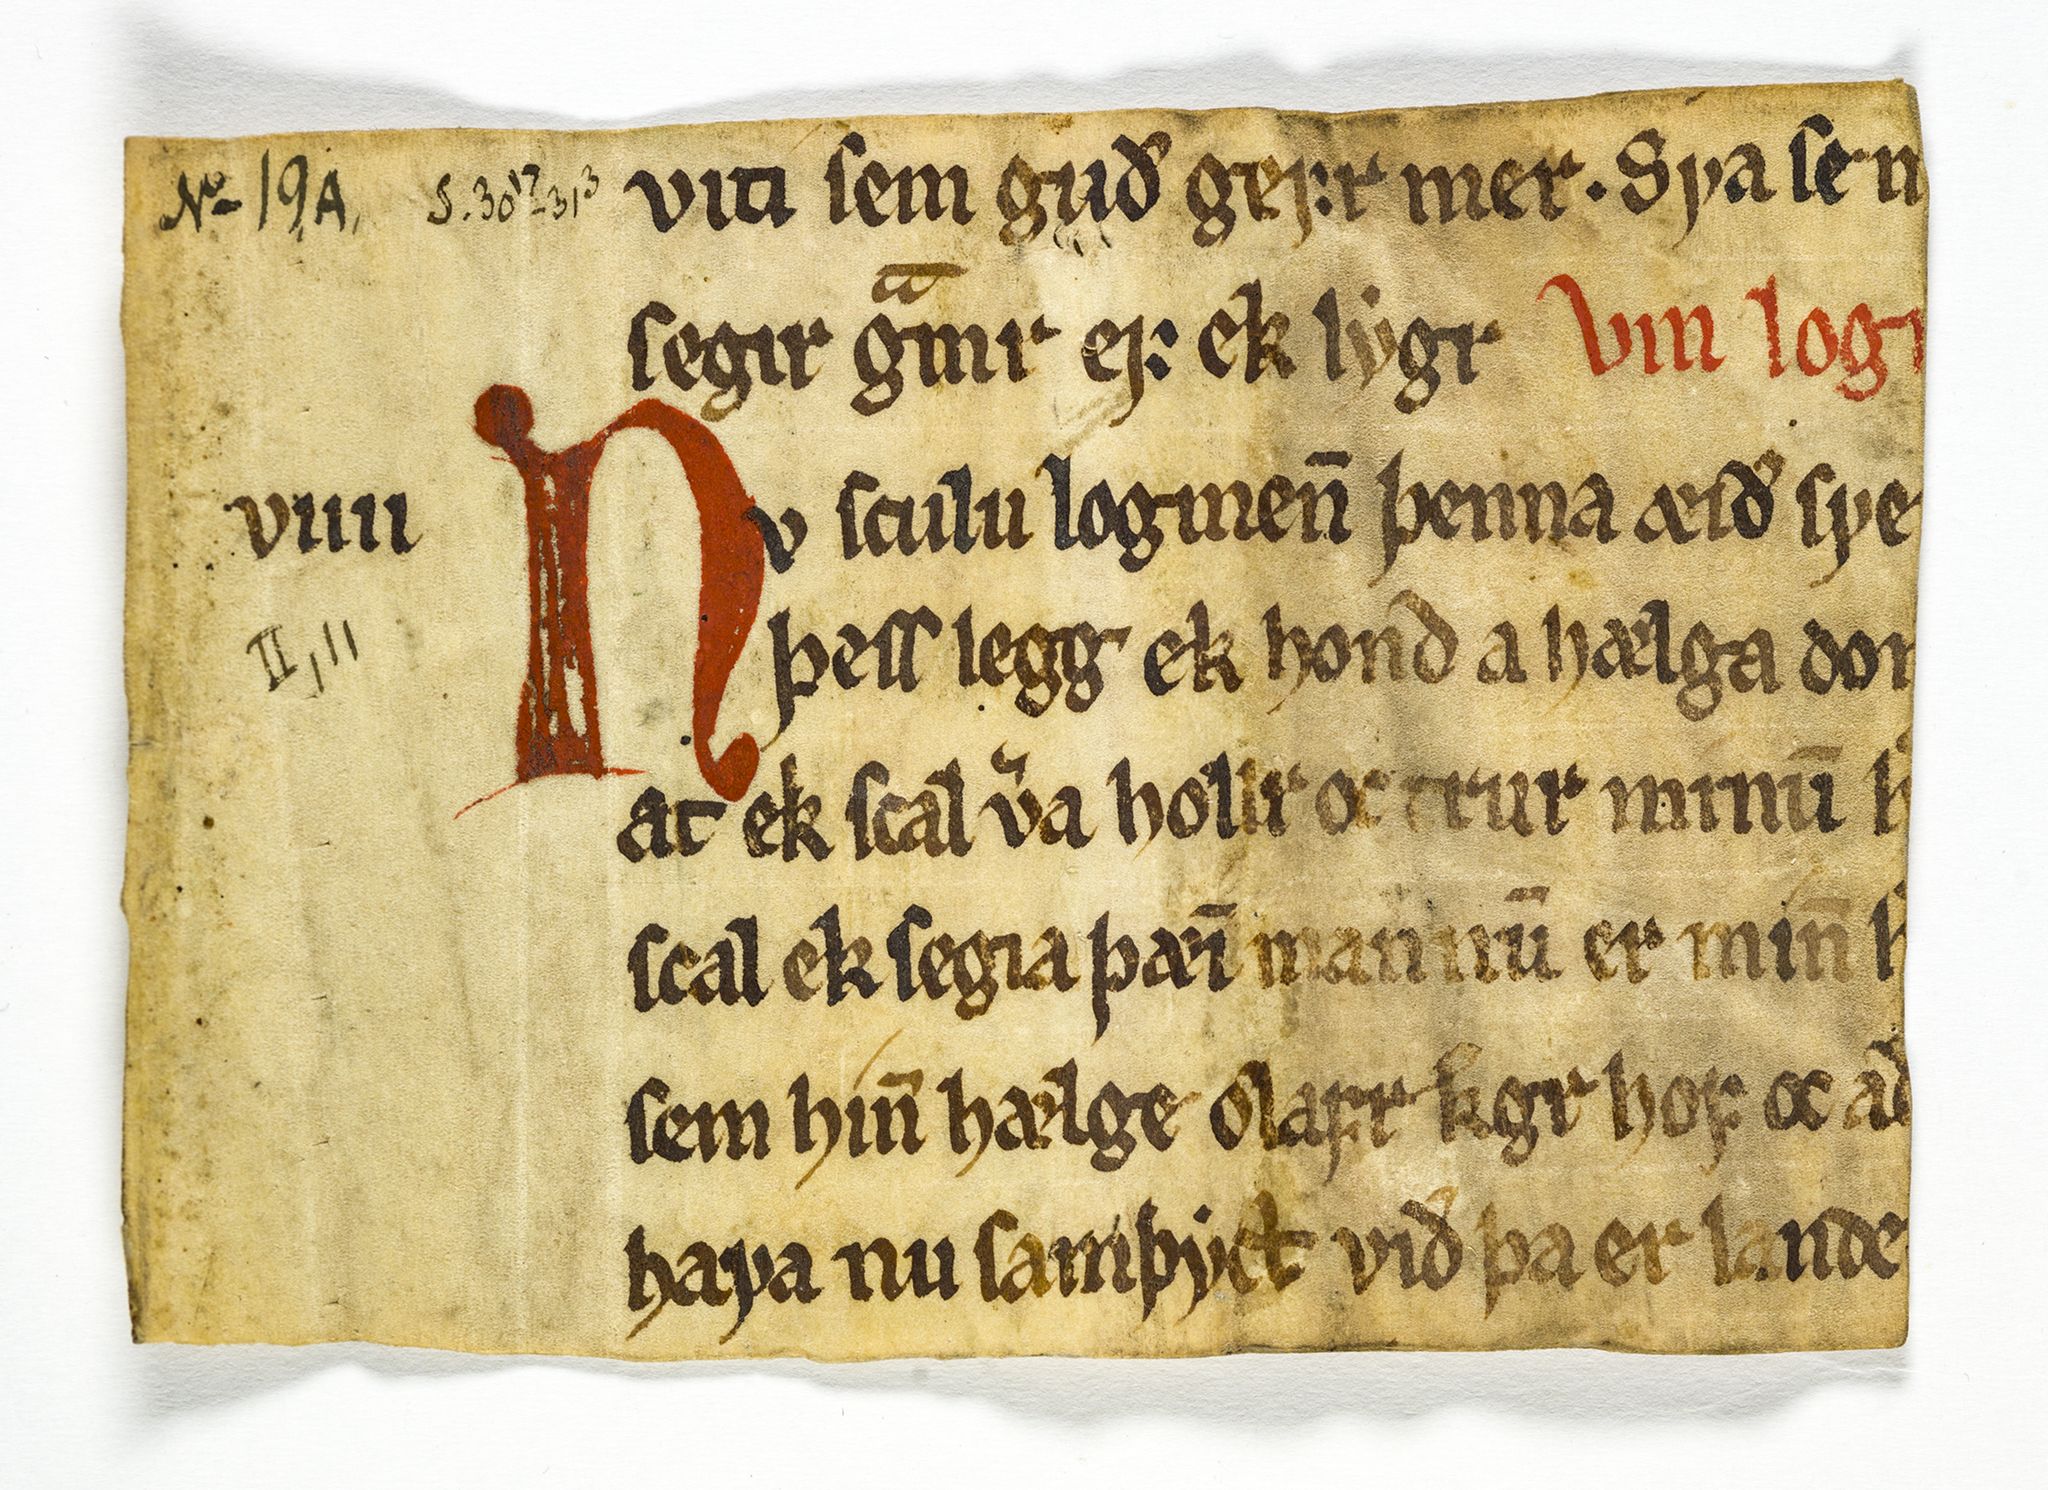 No 19A, S. 30¹⁷-31³ viti sem guð gefꝛ mer. Sva se m
segir gͣmr ef ek lygr vm log
viiii Nv sculu logmeñ þenna æið sve
II,11 þess legg ek hond a hælga dom
at ek scal v͛a hollr oc trur minū
scal ek segia þæī mannū er miñ
sem hiñ hælge olafr kgr hof oc
hafa nu samþyct við þa er lande